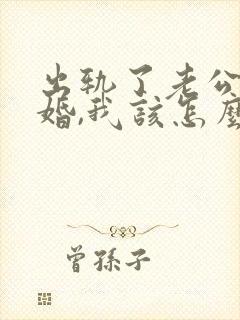 出轨了老公
婚,我该怎麼
曾孫子